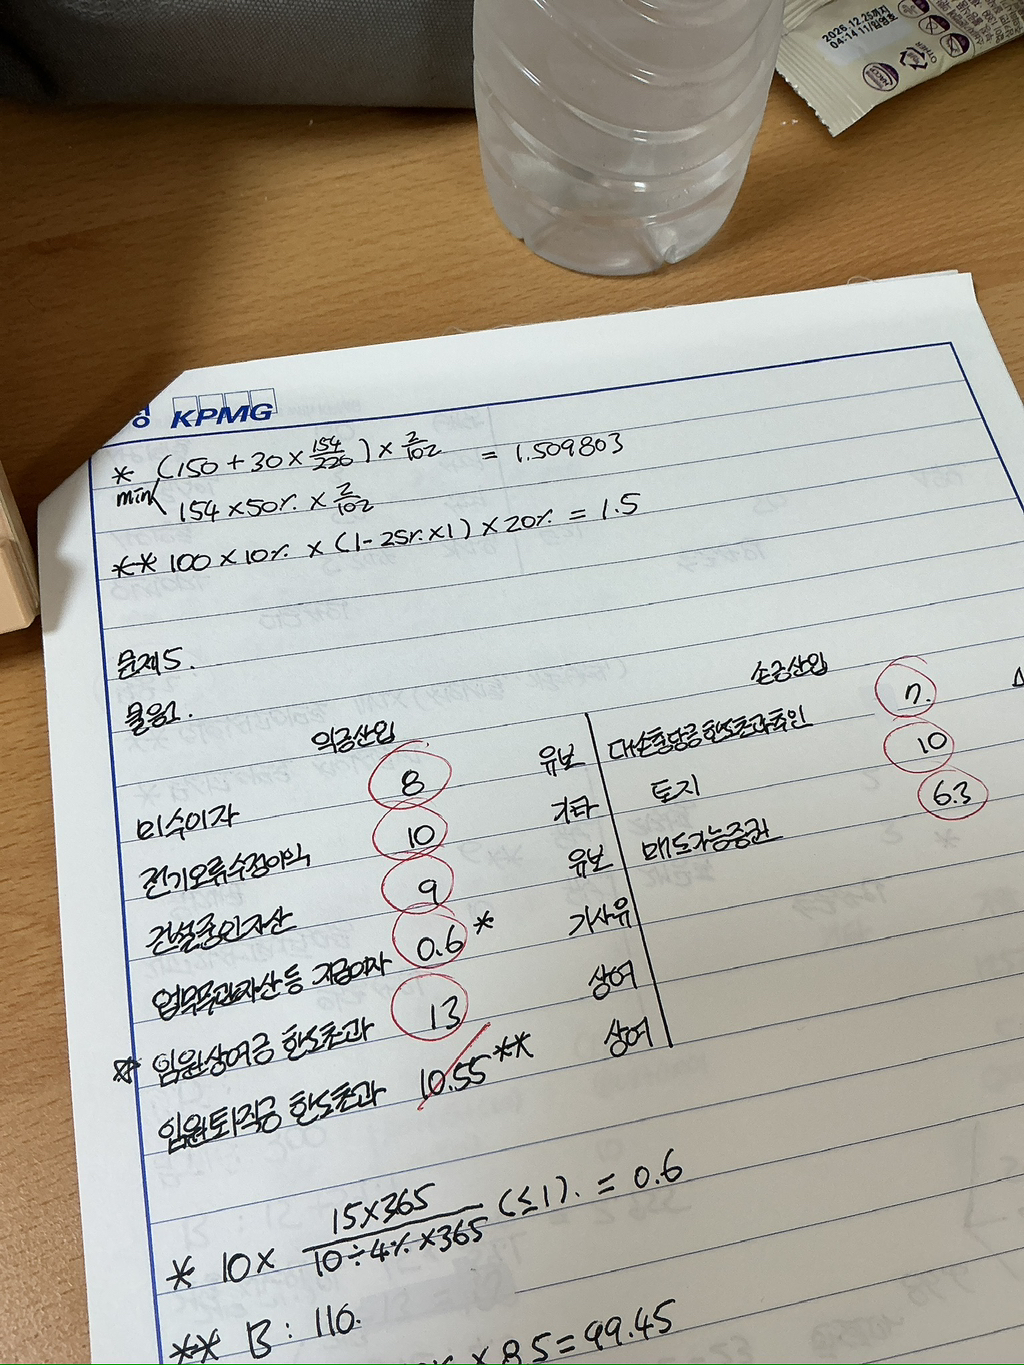 2026.12.25까지
04:14 11/임영호
OTHER
HACCP
KPMG
* (150 + 30 × 154/220) × 2/102 = 1.509803
min( 154 × 50% × 2/102
** 100 × 10% × (1 - 25% × 1) × 20% = 1.5
문제 5.
물음1.
익금산입 손금산입
미수이자 8 유보 대손충당금한도초과추인 7.
전기오류수정이익 10 기타 토지 10
건설중인자산 9 유보 매도가능증권 6.3
업무무관자산등 지급이자 0.6 * 기사유
☆ 임원상여금 한도초과 13 상여
임원퇴직금 한도초과 10.55 ** 상여
* 10 × 15×365 / 10÷4%×365 (≤1). = 0.6
** B : 110.
× 8.5 = 99.45